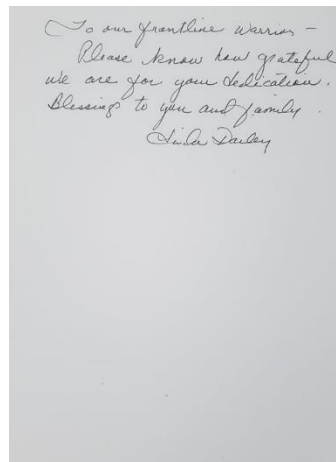 To our frontline warrior –
Please know how grateful
we are for your dedication.
Blessings to you and family.
Linda Dailey